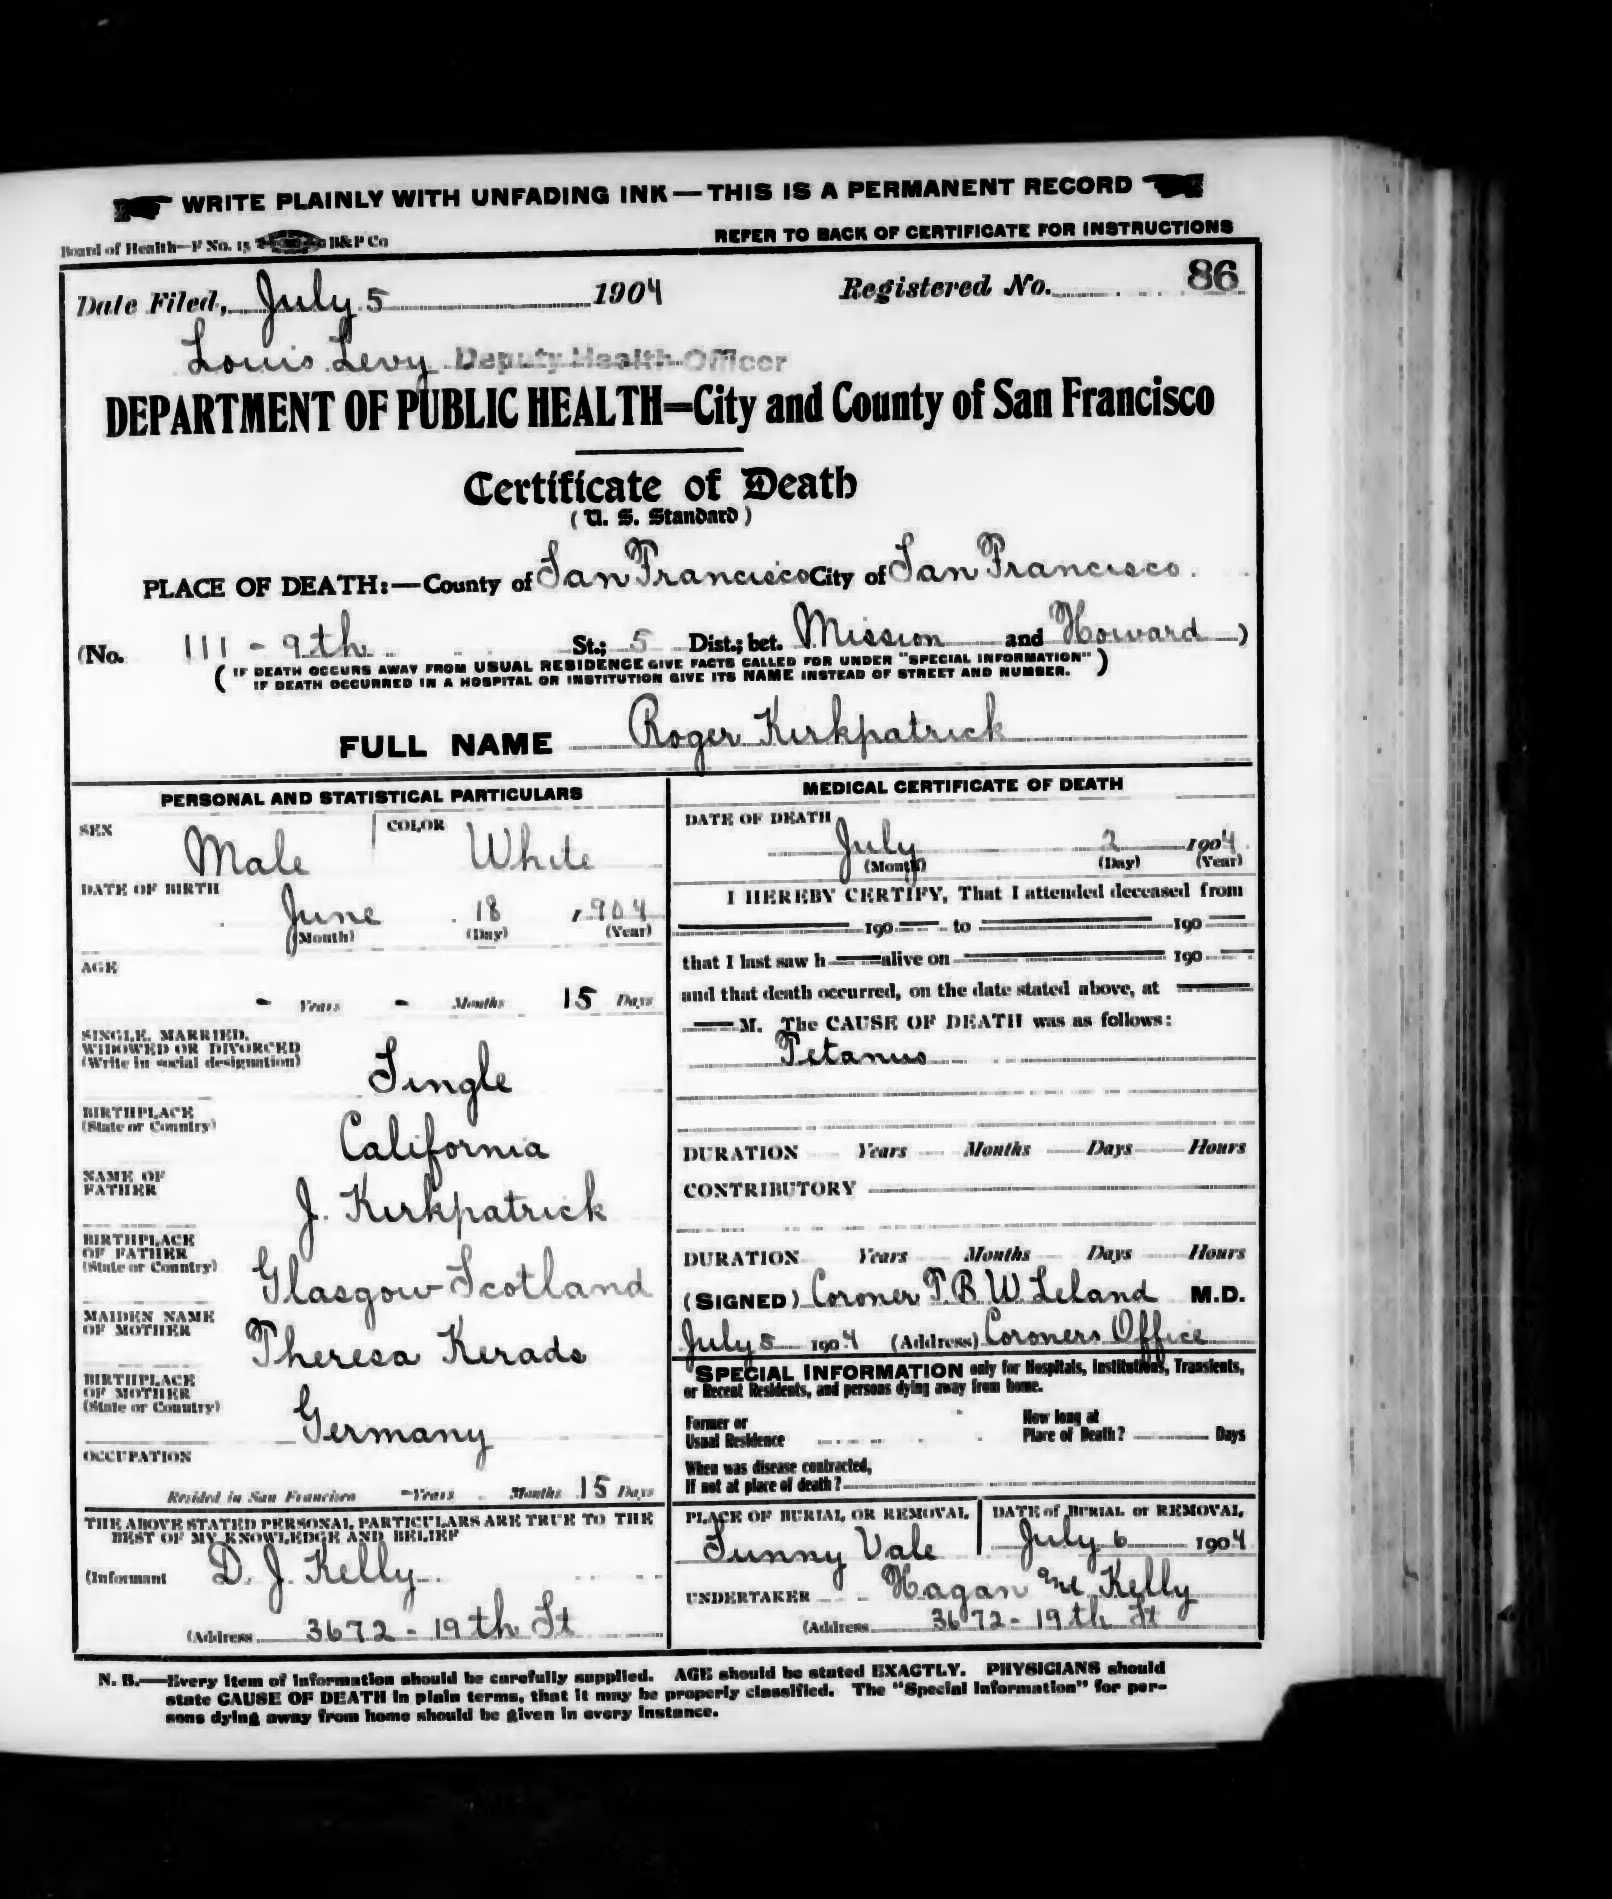 WRITE PLAINLY WITH UNFADING INK — THIS IS A PERMANENT RECORD
Board of Health—F No. 15 B&P Co
REFER TO BACK OF CERTIFICATE FOR INSTRUCTIONS
Date Filed, July 5 1904 Registered No. 86
Louis Levy Deputy Health Officer
DEPARTMENT OF PUBLIC HEALTH=City and County of San Francisco
Certificate of Death
(U. S. Standard)
PLACE OF DEATH:—County of San Francisco City of San Francisco
(No. 111 - 9th St.; 5 Dist.; bet. Mission and Howard)
(IF DEATH OCCURS AWAY FROM USUAL RESIDENCE GIVE FACTS CALLED FOR UNDER "SPECIAL INFORMATION"
IF DEATH OCCURRED IN A HOSPITAL OR INSTITUTION GIVE ITS NAME INSTEAD OF STREET AND NUMBER.)
FULL NAME Roger Kirkpatrick
PERSONAL AND STATISTICAL PARTICULARS
SEX Male COLOR White
DATE OF BIRTH
June 18 1904
(Month) (Day) (Year)
AGE
- Years - Months 15 Days
SINGLE, MARRIED,
WIDOWED OR DIVORCED
(Write in social designation)
Single
BIRTHPLACE
(State or Country)
California
NAME OF
FATHER
J. Kirkpatrick
BIRTHPLACE
OF FATHER
(State or Country)
Glasgow Scotland
MAIDEN NAME
OF MOTHER
Theresa Kerads
BIRTHPLACE
OF MOTHER
(State or Country)
Germany
OCCUPATION
Resided in San Francisco - Years Months 15 Days
THE ABOVE STATED PERSONAL PARTICULARS ARE TRUE TO THE
BEST OF MY KNOWLEDGE AND BELIEF
(Informant D. J. Kelly
(Address 3672 - 19th St
MEDICAL CERTIFICATE OF DEATH
DATE OF DEATH
July 2 1904
(Month) (Day) (Year)
I HEREBY CERTIFY, That I attended deceased from
190 to 190
that I last saw h alive on 190
and that death occurred, on the date stated above, at
M. The CAUSE OF DEATH was as follows:
Tetanus
DURATION Years Months Days Hours
CONTRIBUTORY
DURATION Years Months Days Hours
(SIGNED) Coroner T B W Leland M.D.
July 5 1904 (Address) Coroners Office
SPECIAL INFORMATION only for Hospitals, Institutions, Transients,
or Recent Residents, and persons dying away from home.
Former or
Usual Residence
How long at
Place of Death? Days
When was disease contracted,
If not at place of death?
PLACE OF BURIAL OR REMOVAL
Sunny Vale
DATE of BURIAL or REMOVAL
July 6 1904
UNDERTAKER Hagan and Kelly
(Address 3672 - 19th St
N. B.—Every item of information should be carefully supplied. AGE should be stated EXACTLY. PHYSICIANS should
state CAUSE OF DEATH in plain terms, that it may be properly classified. The "Special Information" for per-
sons dying away from home should be given in every instance.